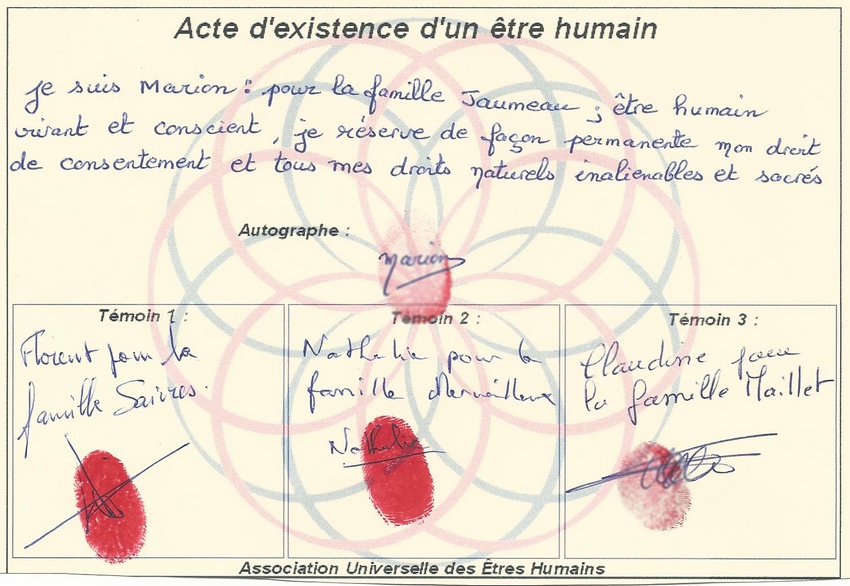 Acte d'existence d'un être humain
Je suis Marion : pour la famille Jaumeau ; être humain
vivant et conscient, je réserve de façon permanente mon droit
de consentement et tous mes droits naturels inalienables et sacrés
Autographe :
Marion
Témoin 1 :
Florent pour la
famille Saivres.
Témoin 2 :
Nathalie pour la
famille Merveilleux
Nathalie
Témoin 3 :
Claudine pour
la famille Maillet
Association Universelle des Êtres Humains